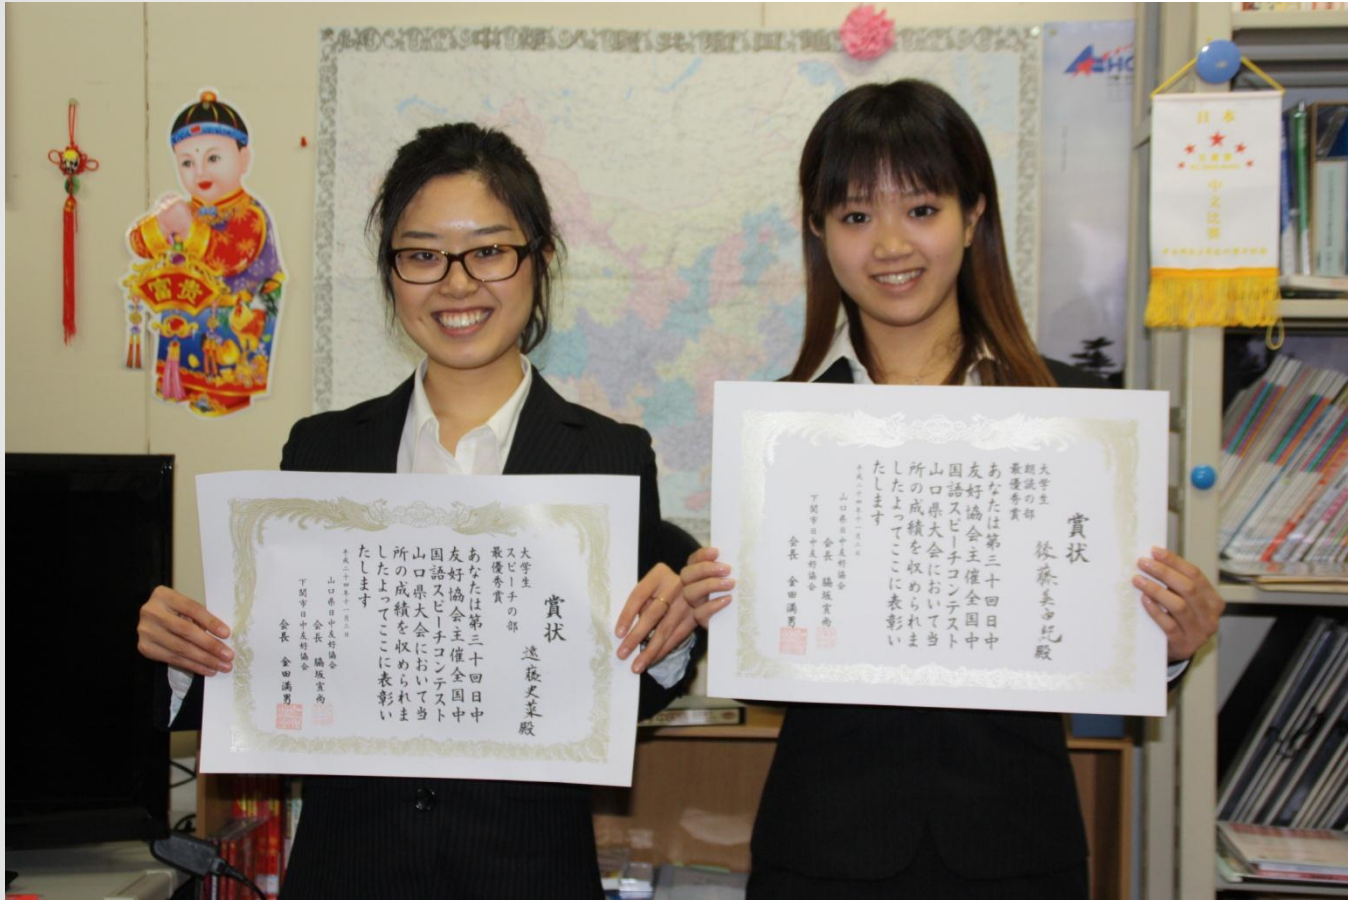 中华人民共和国地图
富贵
日本
中文比赛
賞状
遠藤史菜殿
大学生
スピーチの部
最優秀賞
あなたは第三十回日中
友好協会主催全国中
国語スピーチコンテスト
山口県大会において当
所の成績を収められま
したよってここに表彰い
たします
平成二十四年十一月三日
山口県日中友好協会
会長
下関市日中友好協会
会長 金田満男
賞状
後藤美由紀殿
大学生
朗読の部
最優秀賞
あなたは第三十回日中
友好協会主催全国中
国語スピーチコンテスト
山口県大会において当
所の成績を収められま
したよってここに表彰い
たします
平成二十四年十一月三日
山口県日中友好協会
会長
下関市日中友好協会
会長 金田満男